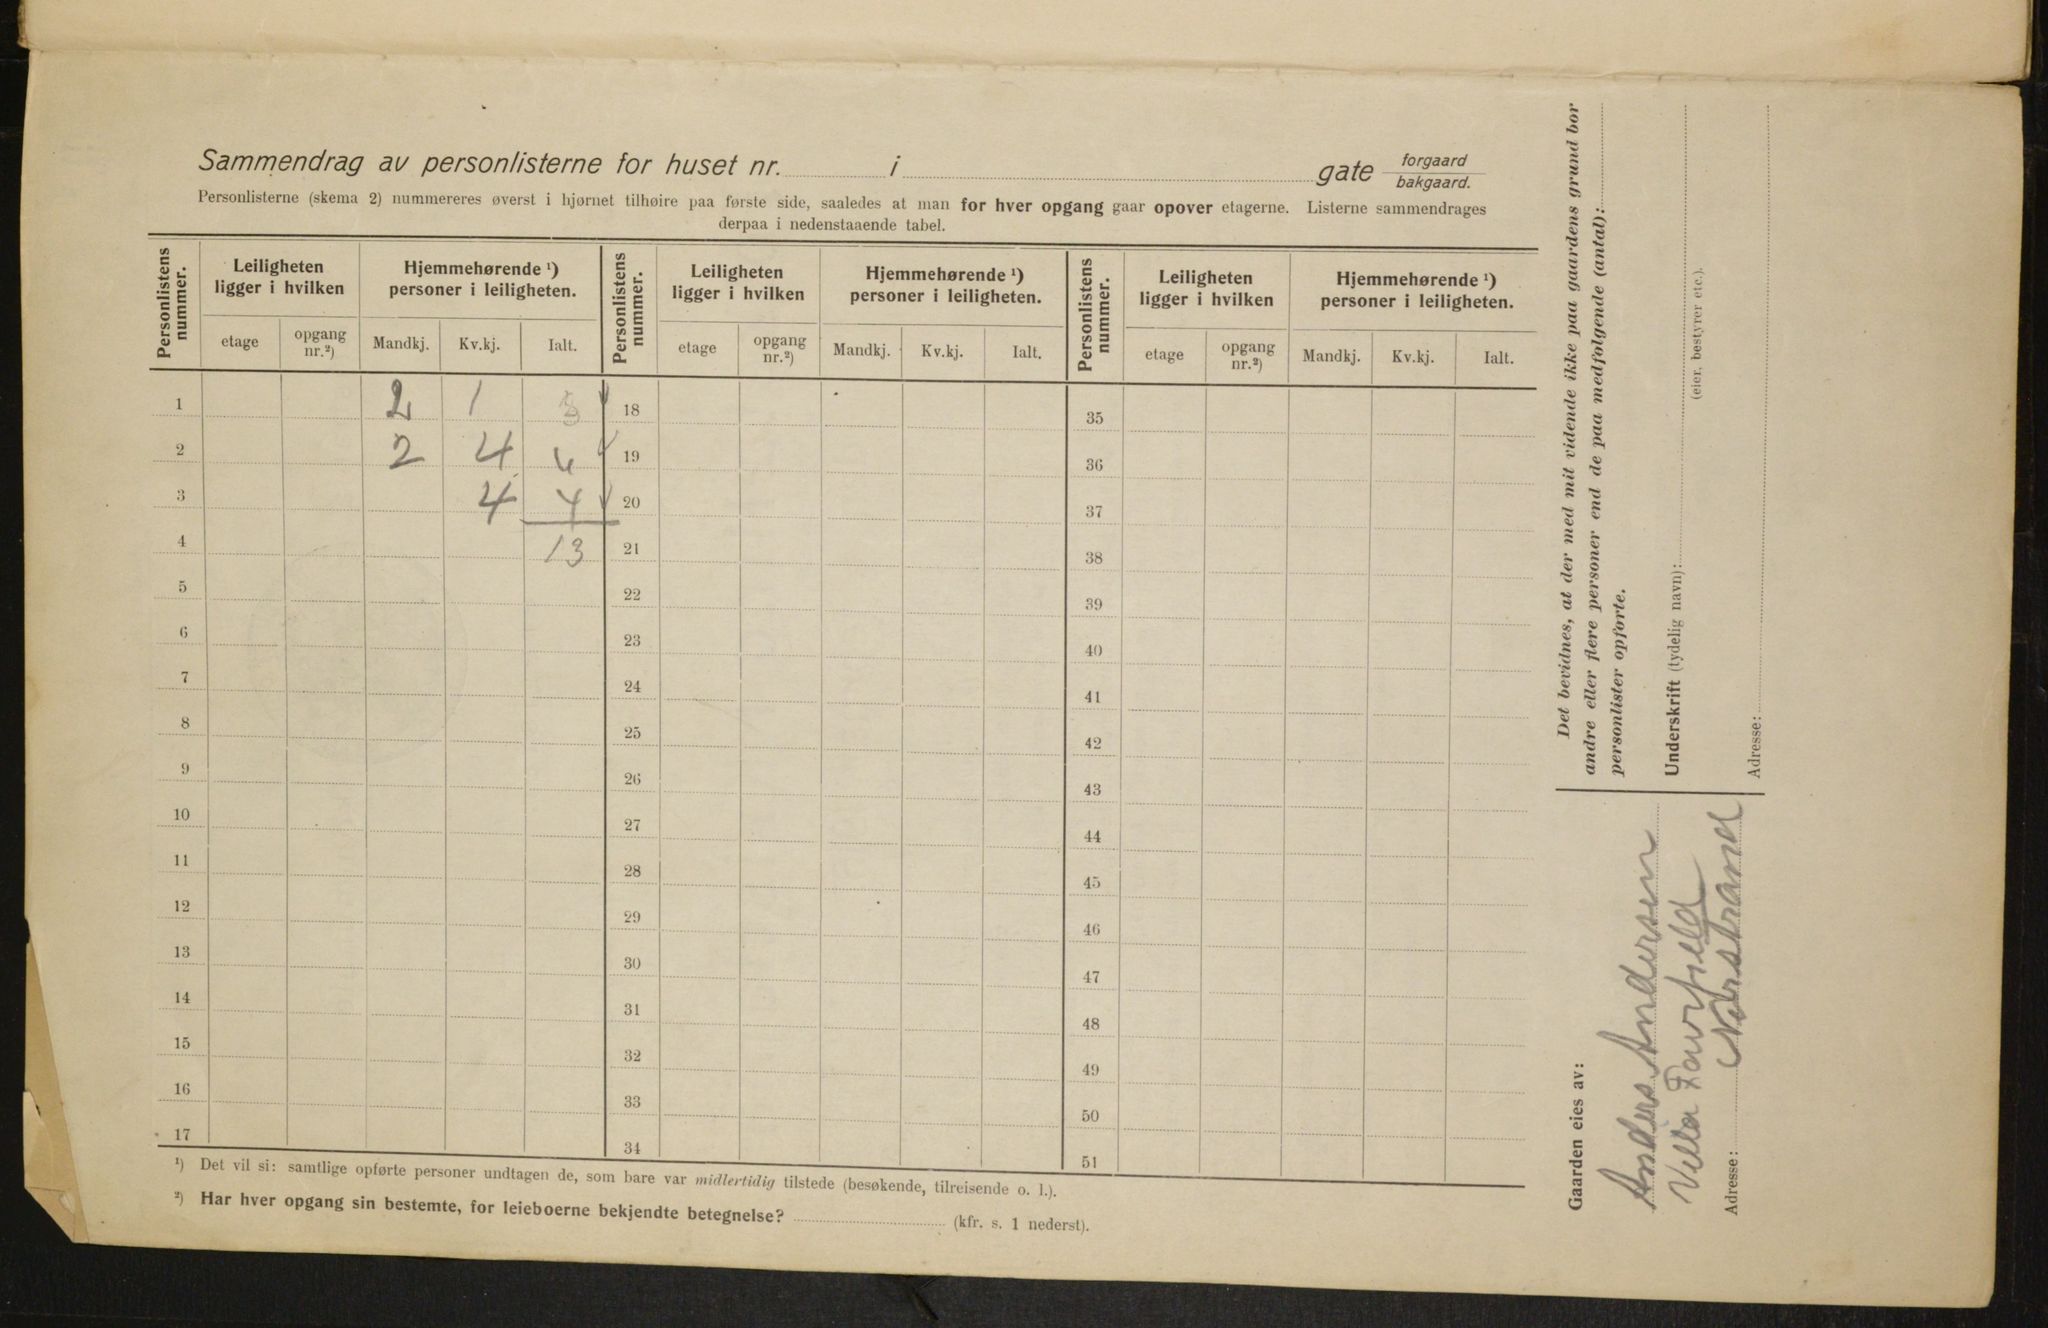 Sammendrag av personlisterne for huset nr. i gate forgaard bakgaard.
Personlisterne (skema 2) nummereres øverst i hjørnet tilhøire paa første side, saaledes at man for hver opgang gaar opover etagerne. Listerne sammendrages
derpaa i nedenstaaende tabel.
Personlistens nummer. Leiligheten ligger i hvilken Hjemmehørende ¹) personer i leiligheten. Personlistens nummer. Leiligheten ligger i hvilken Hjemmehørende ¹) personer i leiligheten. Personlistens nummer. Leiligheten ligger i hvilken Hjemmehørende ¹) personer i leiligheten.
etage opgang nr.²) Mandkj. Kv.kj. Ialt. etage opgang nr.²) Mandkj. Kv.kj. Ialt. etage opgang nr.²) Mandkj. Kv.kj. Ialt.
1 2 1 3 18 35
2 2 4 6 19 36
3 4 4 20 37
4 13 21 38
5 22 39
6 23 40
7 24 41
8 25 42
9 26 43
10 27 44
11 28 45
12 29 46
13 30 47
14 31 48
15 32 49
16 33 50
17 34 51
¹) Det vil si: samtlige opførte personer undtagen de, som bare var midlertidig tilstede (besøkende, tilreisende o. l.).
²) Har hver opgang sin bestemte, for leieboerne bekjendte betegnelse? (kfr. s. 1 nederst).
Det bevidnes, at der med mit vidende ikke paa gaardens grund bor
andre eller flere personer end de paa medfølgende (antal):
personlister opførte.
Underskrift (tydelig navn):
(eier, bestyrer etc.).
Adresse:
Gaarden eies av:
Anders Andersen
Villa
Adresse: Nordstrand